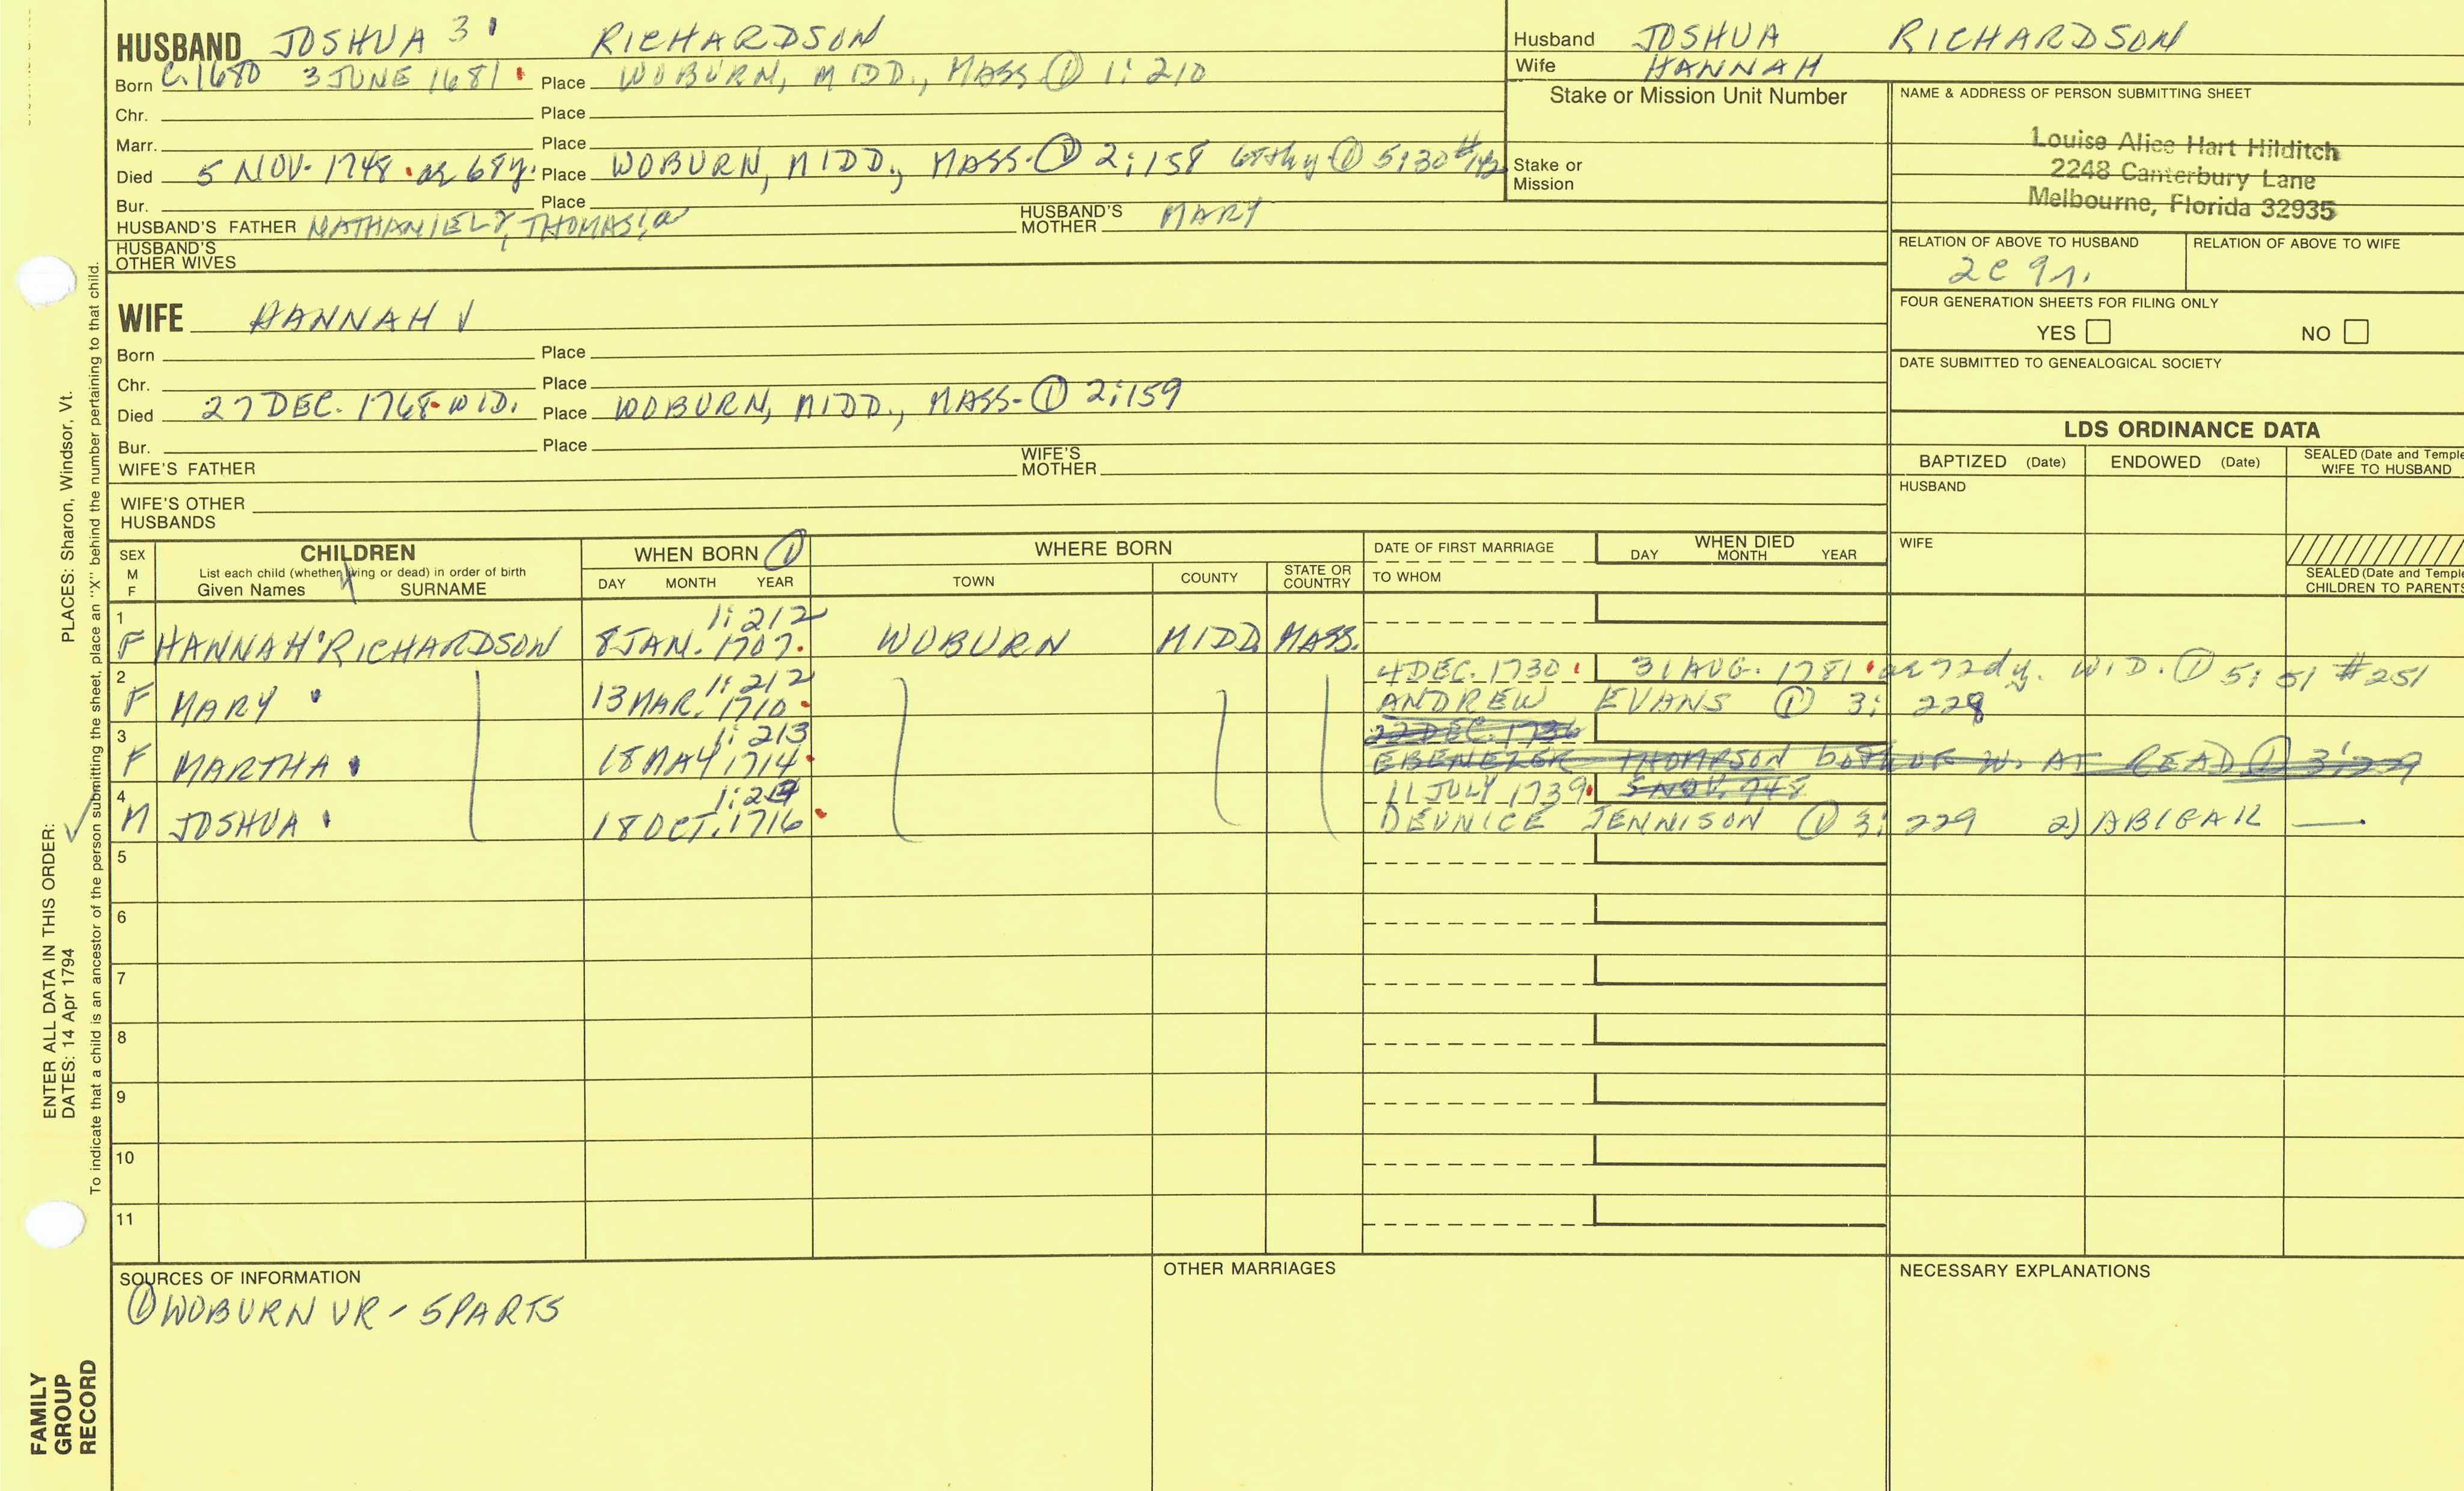 HUSBAND JOSHUA 3 RICHARDSON
Born C.1680 3 JUNE 1681 Place WOBURN, MIDD., MASS ① 1:210
Chr. Place
Marr. Place
Died 5 NOV. 1748 ae 68y. Place WOBURN, MIDD., MASS. ① 2:158 68thy ① 5:30
Bur. Place
HUSBAND'S FATHER NATHANIEL2, THOMAS1 HUSBAND'S MOTHER MARY
HUSBAND'S OTHER WIVES
Husband JOSHUA RICHARDSON
Wife HANNAH
Stake or Mission Unit Number
Stake or Mission
NAME & ADDRESS OF PERSON SUBMITTING SHEET
Louise Alice Hart Hilditch
2248 Canterbury Lane
Melbourne, Florida 32935
RELATION OF ABOVE TO HUSBAND RELATION OF ABOVE TO WIFE
2C 9r.
FOUR GENERATION SHEETS FOR FILING ONLY
YES NO
DATE SUBMITTED TO GENEALOGICAL SOCIETY
WIFE HANNAH
Born Place
Chr. Place
Died 27 DEC. 1768 WID. Place WOBURN, MIDD., MASS. ① 2:159
Bur. Place
WIFE'S FATHER WIFE'S MOTHER
WIFE'S OTHER HUSBANDS
LDS ORDINANCE DATA
BAPTIZED (Date) ENDOWED (Date) SEALED (Date and Temple) WIFE TO HUSBAND
HUSBAND
WIFE
SEALED (Date and Temple CHILDREN TO PARENTS
SEX M F
CHILDREN
List each child (whether living or dead) in order of birth
Given Names SURNAME
WHEN BORN ①
DAY MONTH YEAR
WHERE BORN
TOWN COUNTY STATE OR COUNTRY
DATE OF FIRST MARRIAGE
TO WHOM
WHEN DIED
DAY MONTH YEAR
1 1:212
F HANNAH RICHARDSON 8 JAN. 1707. WOBURN MIDD MASS.
2 1:212 4 DEC. 1730 31 AUG. 1781 ae 72dy. WID. ① 5:51 #251
F MARY 13 MAR. 1710 ANDREW EVANS ① 3:228
3 1:213 22 DEC. 1736
F MARTHA 18 MAY 1714 EBENEZER THOMPSON both OF W. AT READ ① 3:229
4 11 JULY 1739 5 NOV. 748
M JOSHUA 18 OCT. 1716 DEUNICE JENNISON ① 3:229 2) ABIGAIL —
5
6
7
8
9
10
11
SOURCES OF INFORMATION
① WOBURN VR - 5 PARTS
OTHER MARRIAGES
NECESSARY EXPLANATIONS
PLACES: Sharon, Windsor, Vt.
ENTER ALL DATA IN THIS ORDER:
DATES: 14 Apr 1794
To indicate that a child is an ancestor of the person submitting the sheet, place an "X" behind the number pertaining to that child.
FAMILY
GROUP
RECORD